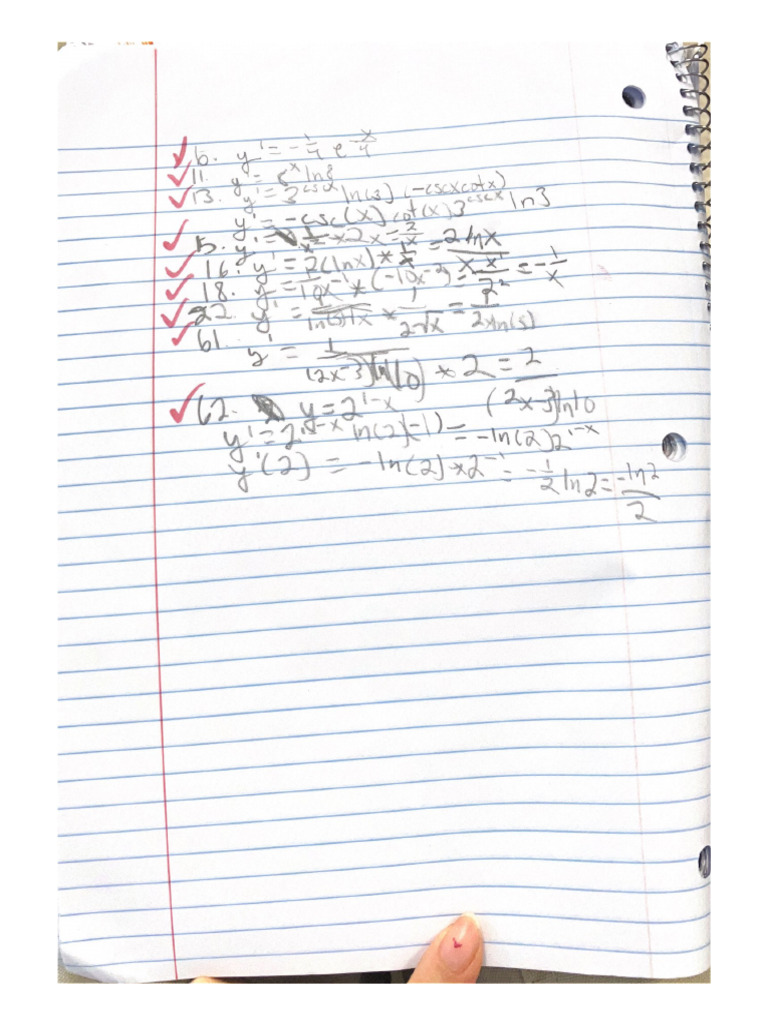 6. y' = -1/4 e^(-x/4)
11. y' = 8^x ln8
13. y' = 3^(cscx) ln(3) (-cscxcotx)
y' = -csc(x)cot(x)3^(cscx) ln3
15. y' = 1/x² * 2x = 2/x
16. y' = 2(lnx) * 1/x = 2lnx/x
18. y' = * (-10x^-3) = = -1/x
22. y' = 1/(ln(5)√x) * 1/(2√x) = 1/(2xln(5))
61. y' = 1/((2x-3)ln(10)) * 2 = 2/((2x-3)ln10)
62. y = 2^(1-x)
y' = 2^(1-x) ln(2)(-1) = -ln(2)2^(1-x)
y'(2) = -ln(2) * 2^-1 = -1/2 ln2 = -ln2/2